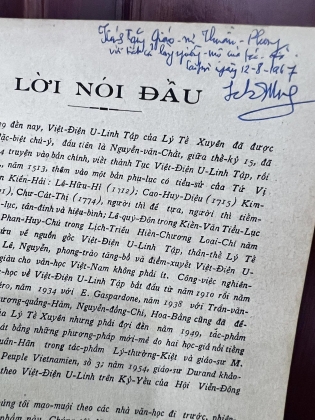 Kính tặng Giáo-sư Thuần-Phong
Saigon ngày 12-8-1967
LỜI NÓI ĐẦU
đến nay, Việt-Điện U-Linh Tập của Lý Tế Xuyên đã được
đặc-biệt chú-ý, đầu tiên là Nguyễn-văn-Chất, giữa thế-kỷ 15, đã
4 truyện vào bản chính, viết thành Tục Việt-Điện U-Linh Tập, rồi
, năm 1513, thêm vào một bản phụ-lục có tiểu-sử của Tứ Vị
n Kiến-Hải : Lê-Hữu-Hỉ (1712); Cao-Huy-Diệu (1715) Kim-
), Chư-Cát-Thị (1774), người thì đề tựa, người thì tiêm-
-lục, tân-đính và hiệu-bình; Lê-quý-Đôn trong Kiến-Văn Tiểu-Lục
Phan-Huy-Chú trong Lịch-Triều Hiến-Chương Loại-Chí năm
cứu về nguồn gốc Việt-Điện U-Linh Tập, thân-thế Lý Tế
Lê, Nguyễn, phong-trào tăng-bổ và điểm-xuyết Việt-Điện U-
giàu cho văn-học Việt-Nam không phải ít. Công-việc nghiên-
-học về Việt-Điện U-Linh Tập bắt đầu từ năm 1910 rồi năm
năm 1934 với E. Gaspardone, năm 1938 với Trần-văn-
Dương-quảng-Hàm, Nguyễn-đổng-Chi, Hoa-Bằng cũng đã đề-
của Lý Tế Xuyên nhưng phải đợi đến năm 1949, tác-phẩm
sát bằng những phương-pháp mới-mẻ do hai học-giả nổi tiếng
Xuân-Hãn trong tác-phẩm Lý-thường-Kiệt và giáo-sư M.
Peuple Vietnamien, số 3; năm 1954, giáo-sư Durand khảo-
theo Việt-Điện U-Linh trên Kỷ-Yếu của Hội Viễn-Đông
chúng tôi mạo-muội theo các nhà văn-học đi trước, phiên-